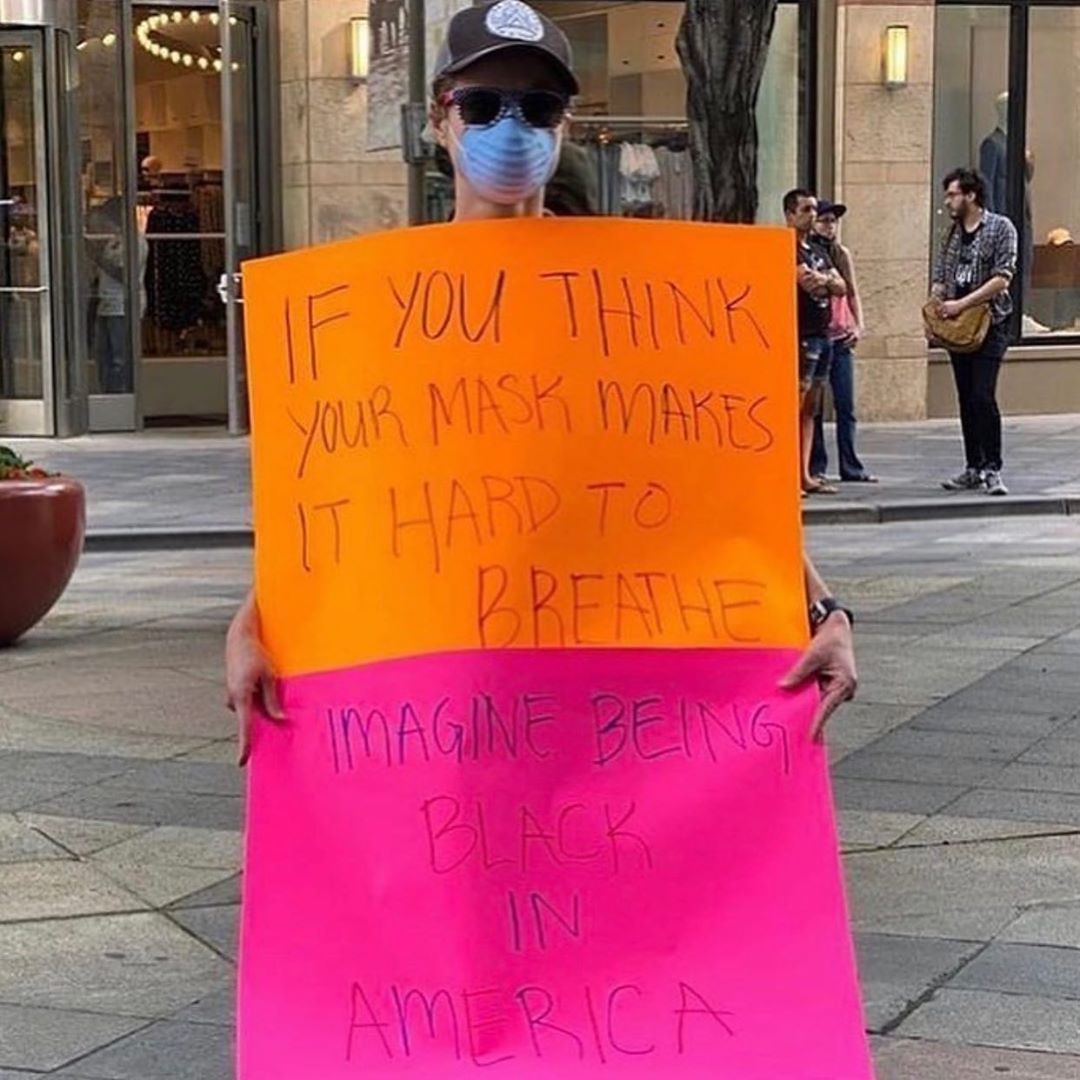 IF YOU THINK
YOUR MASK MAKES
IT HARD TO
BREATHE
IMAGINE BEING
BLACK
IN
AMERICA